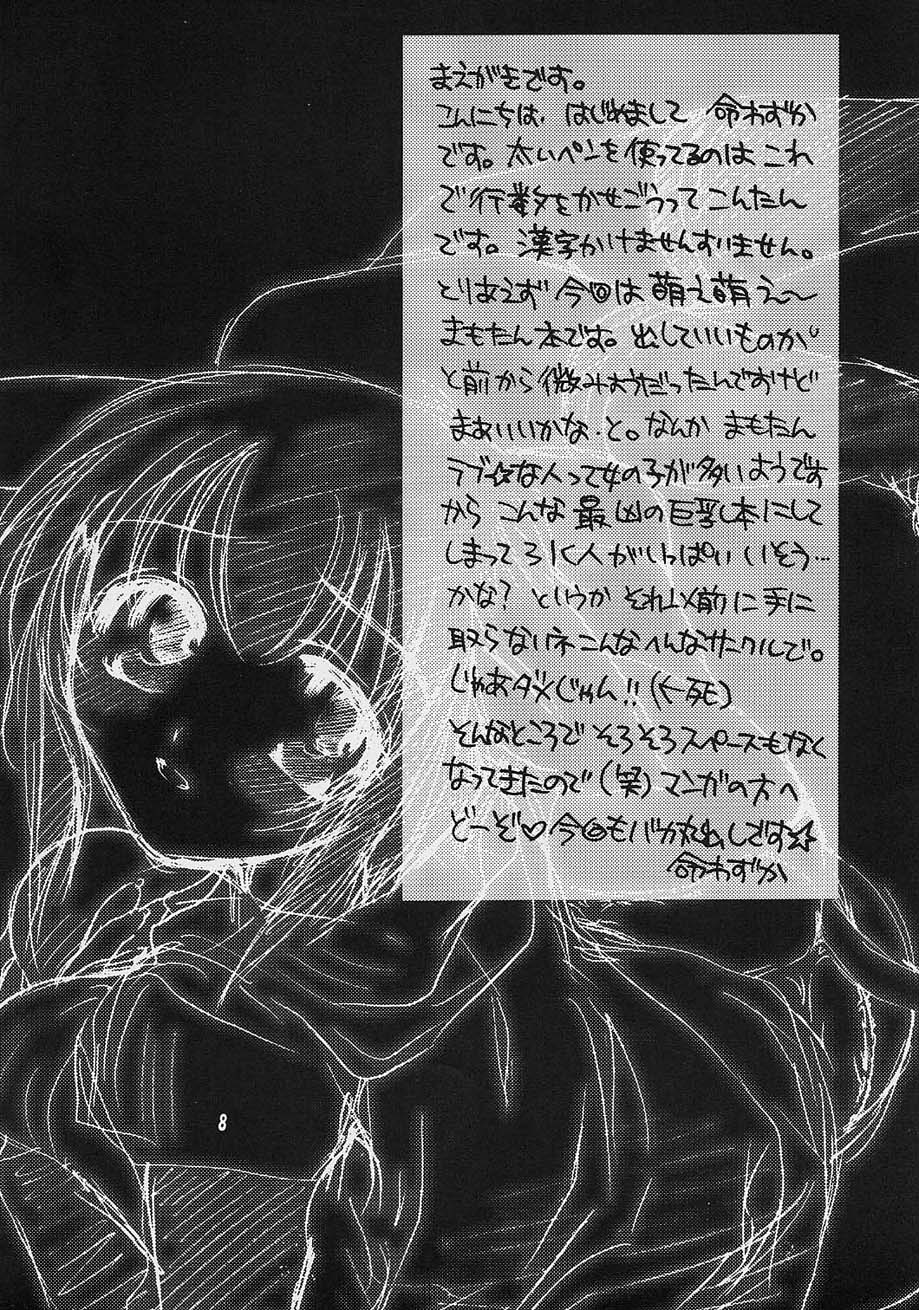 まえがきです。
こんにちは、はじめまして 命わずか
です。太いペンを使ってるのは これ
で行数をかせごうって こんたん
です。漢字かけませんすいません。
とりあえず 今回は 萌え萌え〜
まもたん本です。出していいものか
と前から微みょうだったんですけど
まぁいいかな、と。なんか まもたん
ラブ☆な人って女の子が多いようです
から こんな 最凶の巨乳本にして
しまって ろく人がいっぱい いそう…
かな? というか それ以前に手に
取らないネ こんなへんなサークルで。
じゃあダメじゃん!!(←死)
そんなところで そろそろスペースもなく
なってきたので(笑)マンガの方へ
どーぞ♡今回もバカ丸出しです☆
命わずか
8